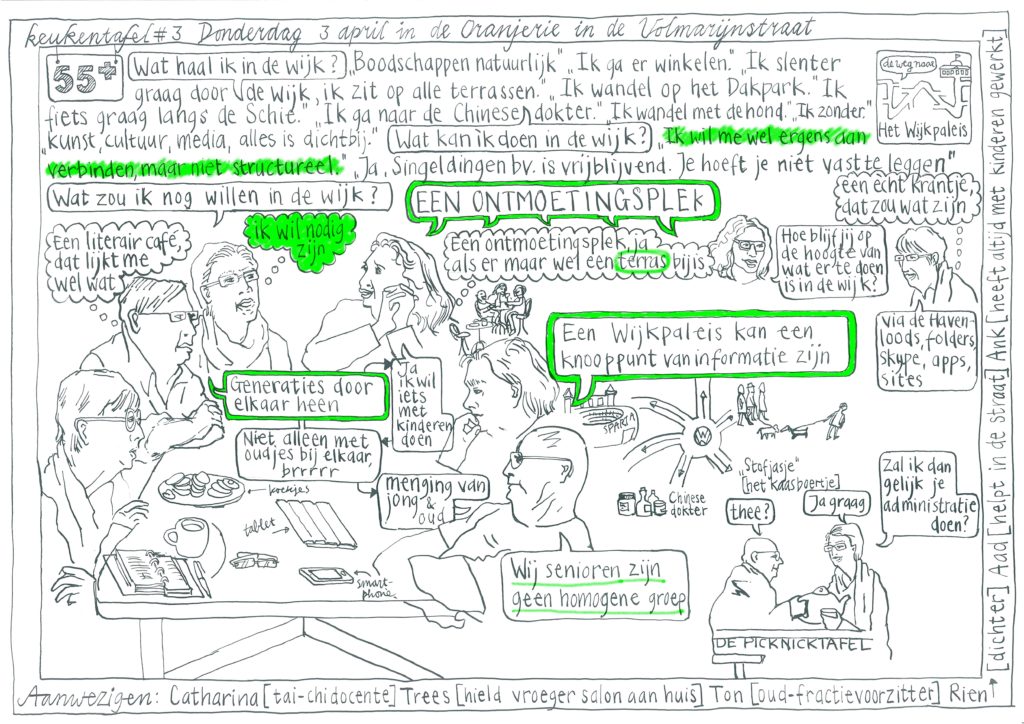 keukentafel #3 Donderdag 3 april in de Oranjerie in de Volmarijnstraat
55+
Wat haal ik in de wijk? „Boodschappen natuurlijk" „Ik ga er winkelen." „Ik slenter
graag door de wijk, ik zit op alle terrassen." „Ik wandel op het Dakpark." „Ik
fiets graag langs de Schie." „Ik ga naar de Chinese dokter." „Ik wandel met de hond." „Ik zonder."
„kunst, cultuur, media, alles is dichtbij." Wat kan ik doen in de wijk? „Ik wil me wel ergens aan
verbinden, maar niet structureel." „Ja, Singeldingen bv. is vrijblijvend. Je hoeft je niet vast te leggen"
de weg naar
Het Wijkpaleis
Wat zou ik nog willen in de wijk?
EEN ONTMOETINGSPLEK
een echt krantje,
dat zou wat zijn
Een literair café,
dat lijkt me
wel wat
ik wil nodig
zijn
Een ontmoetingsplek, ja
als er maar wel een terras bij is
Hoe blijf jij op
de hoogte van
wat er te doen
is in de wijk?
via de Haven-
loods, folders,
skype, apps,
sites
Een Wijkpaleis kan een
knooppunt van informatie zijn
Generaties door
elkaar heen
Ja
ik wil
iets
met
kinderen
doen
Niet alleen met
oudjes bij elkaar,
brrrrr
menging van
jong &
oud
SPARTA
W
Chinese
dokter
„Stofjasje"
[het kaasboertje]
thee?
Ja graag
Zal ik dan
gelijk je
administratie
doen?
koekjes
tablet
smart-
phone
Wij senioren zijn
geen homogene groep
DE PICKNICKTAFEL
Aanwezigen: Catharina [tai-chidocente] Trees [hield vroeger salon aan huis] Ton [oud-fractievoorzitter] Rien
[dichter] Aad [helpt in de straat] Ank [heeft altijd met kinderen gewerkt]